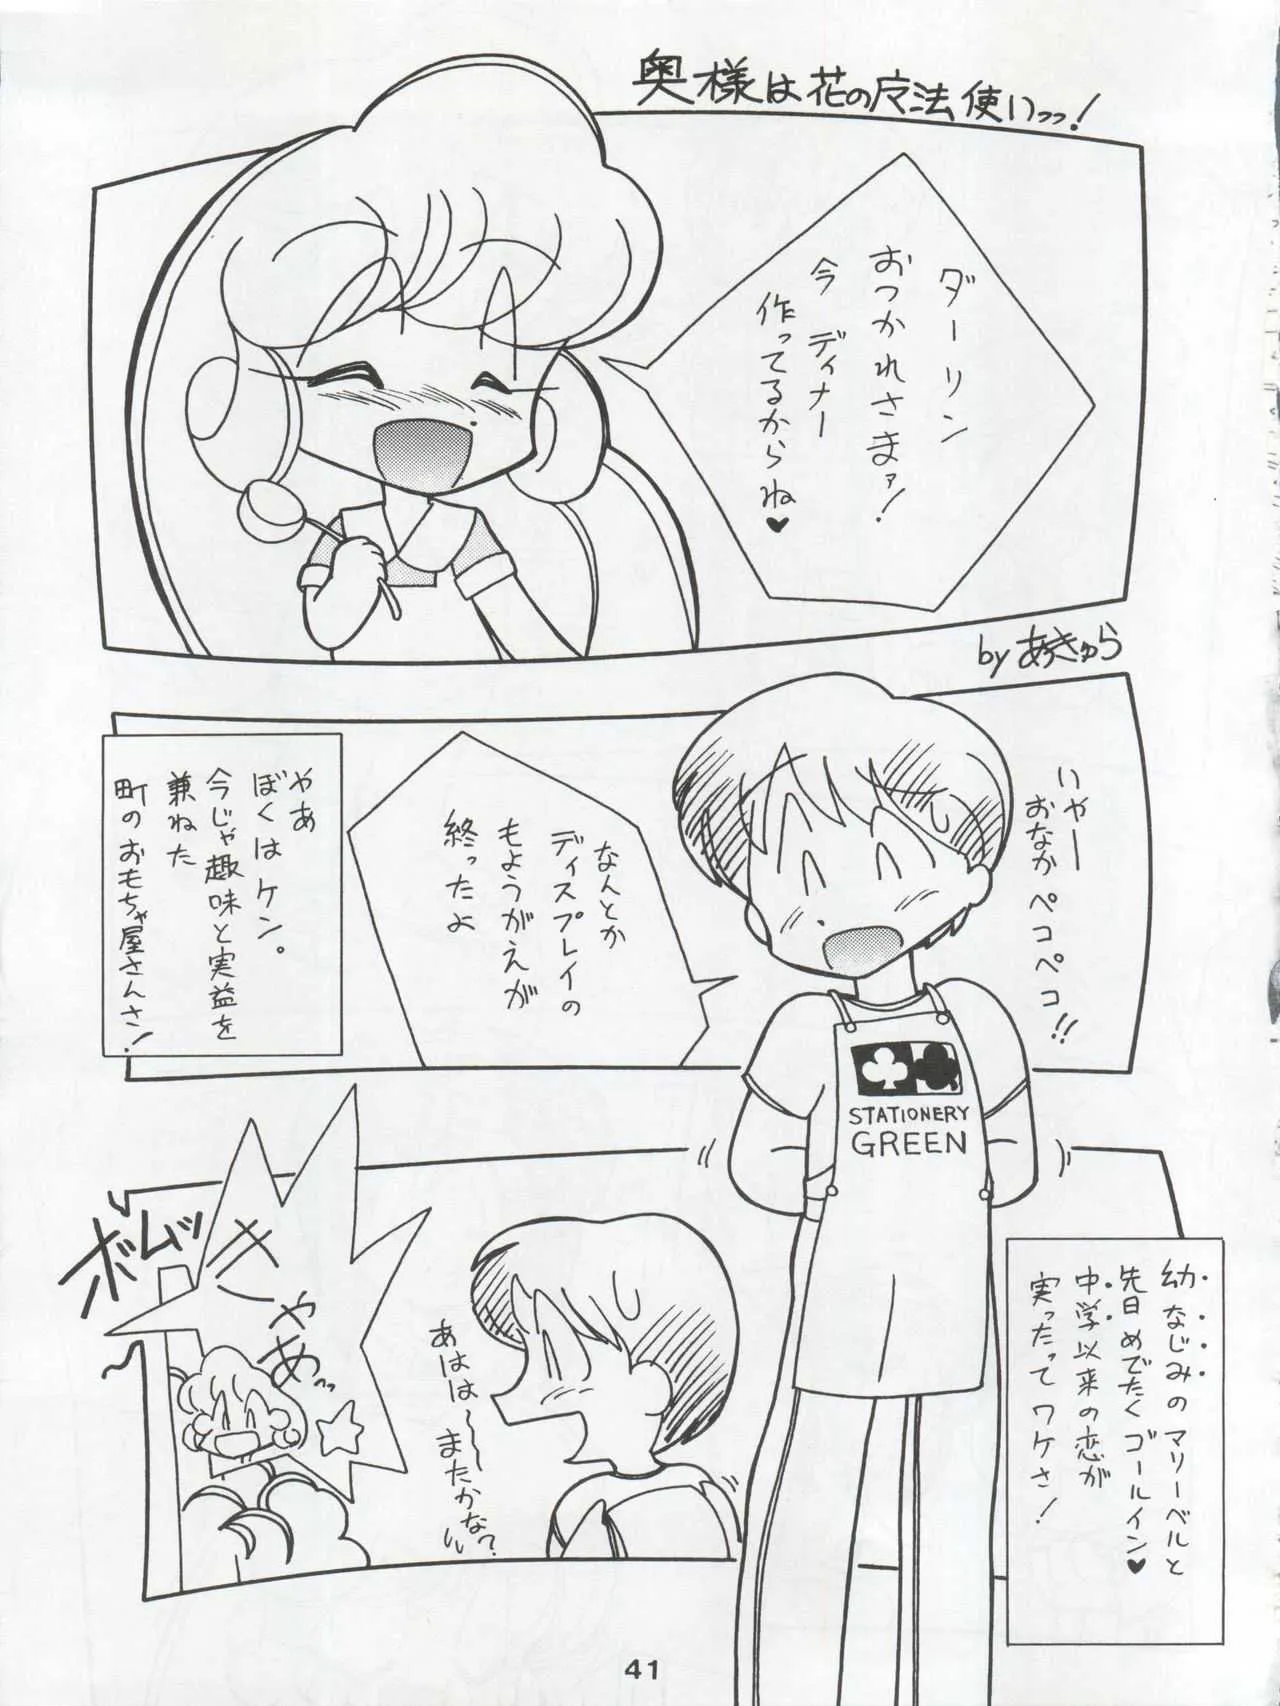 奥様は花の魔法使いっっ!
ダーリン
おつかれさまァ!
今ディナー
作ってるからね♥
by あきゅら
いやー
おなかペコペコ!!
なんとか
ディスプレイの
もようがえが
終ったよ
やあ
ぼくはケン。
今じゃ趣味と実益を
兼ねた
町のおもちゃ屋さんさ!
STATIONERY
GREEN
幼なじみのマリーベルと
先日めでたくゴールイン♥
中学以来の恋が
実ったってワケさ!
あははー
またかな?
きゃあっ
ボムッ
41